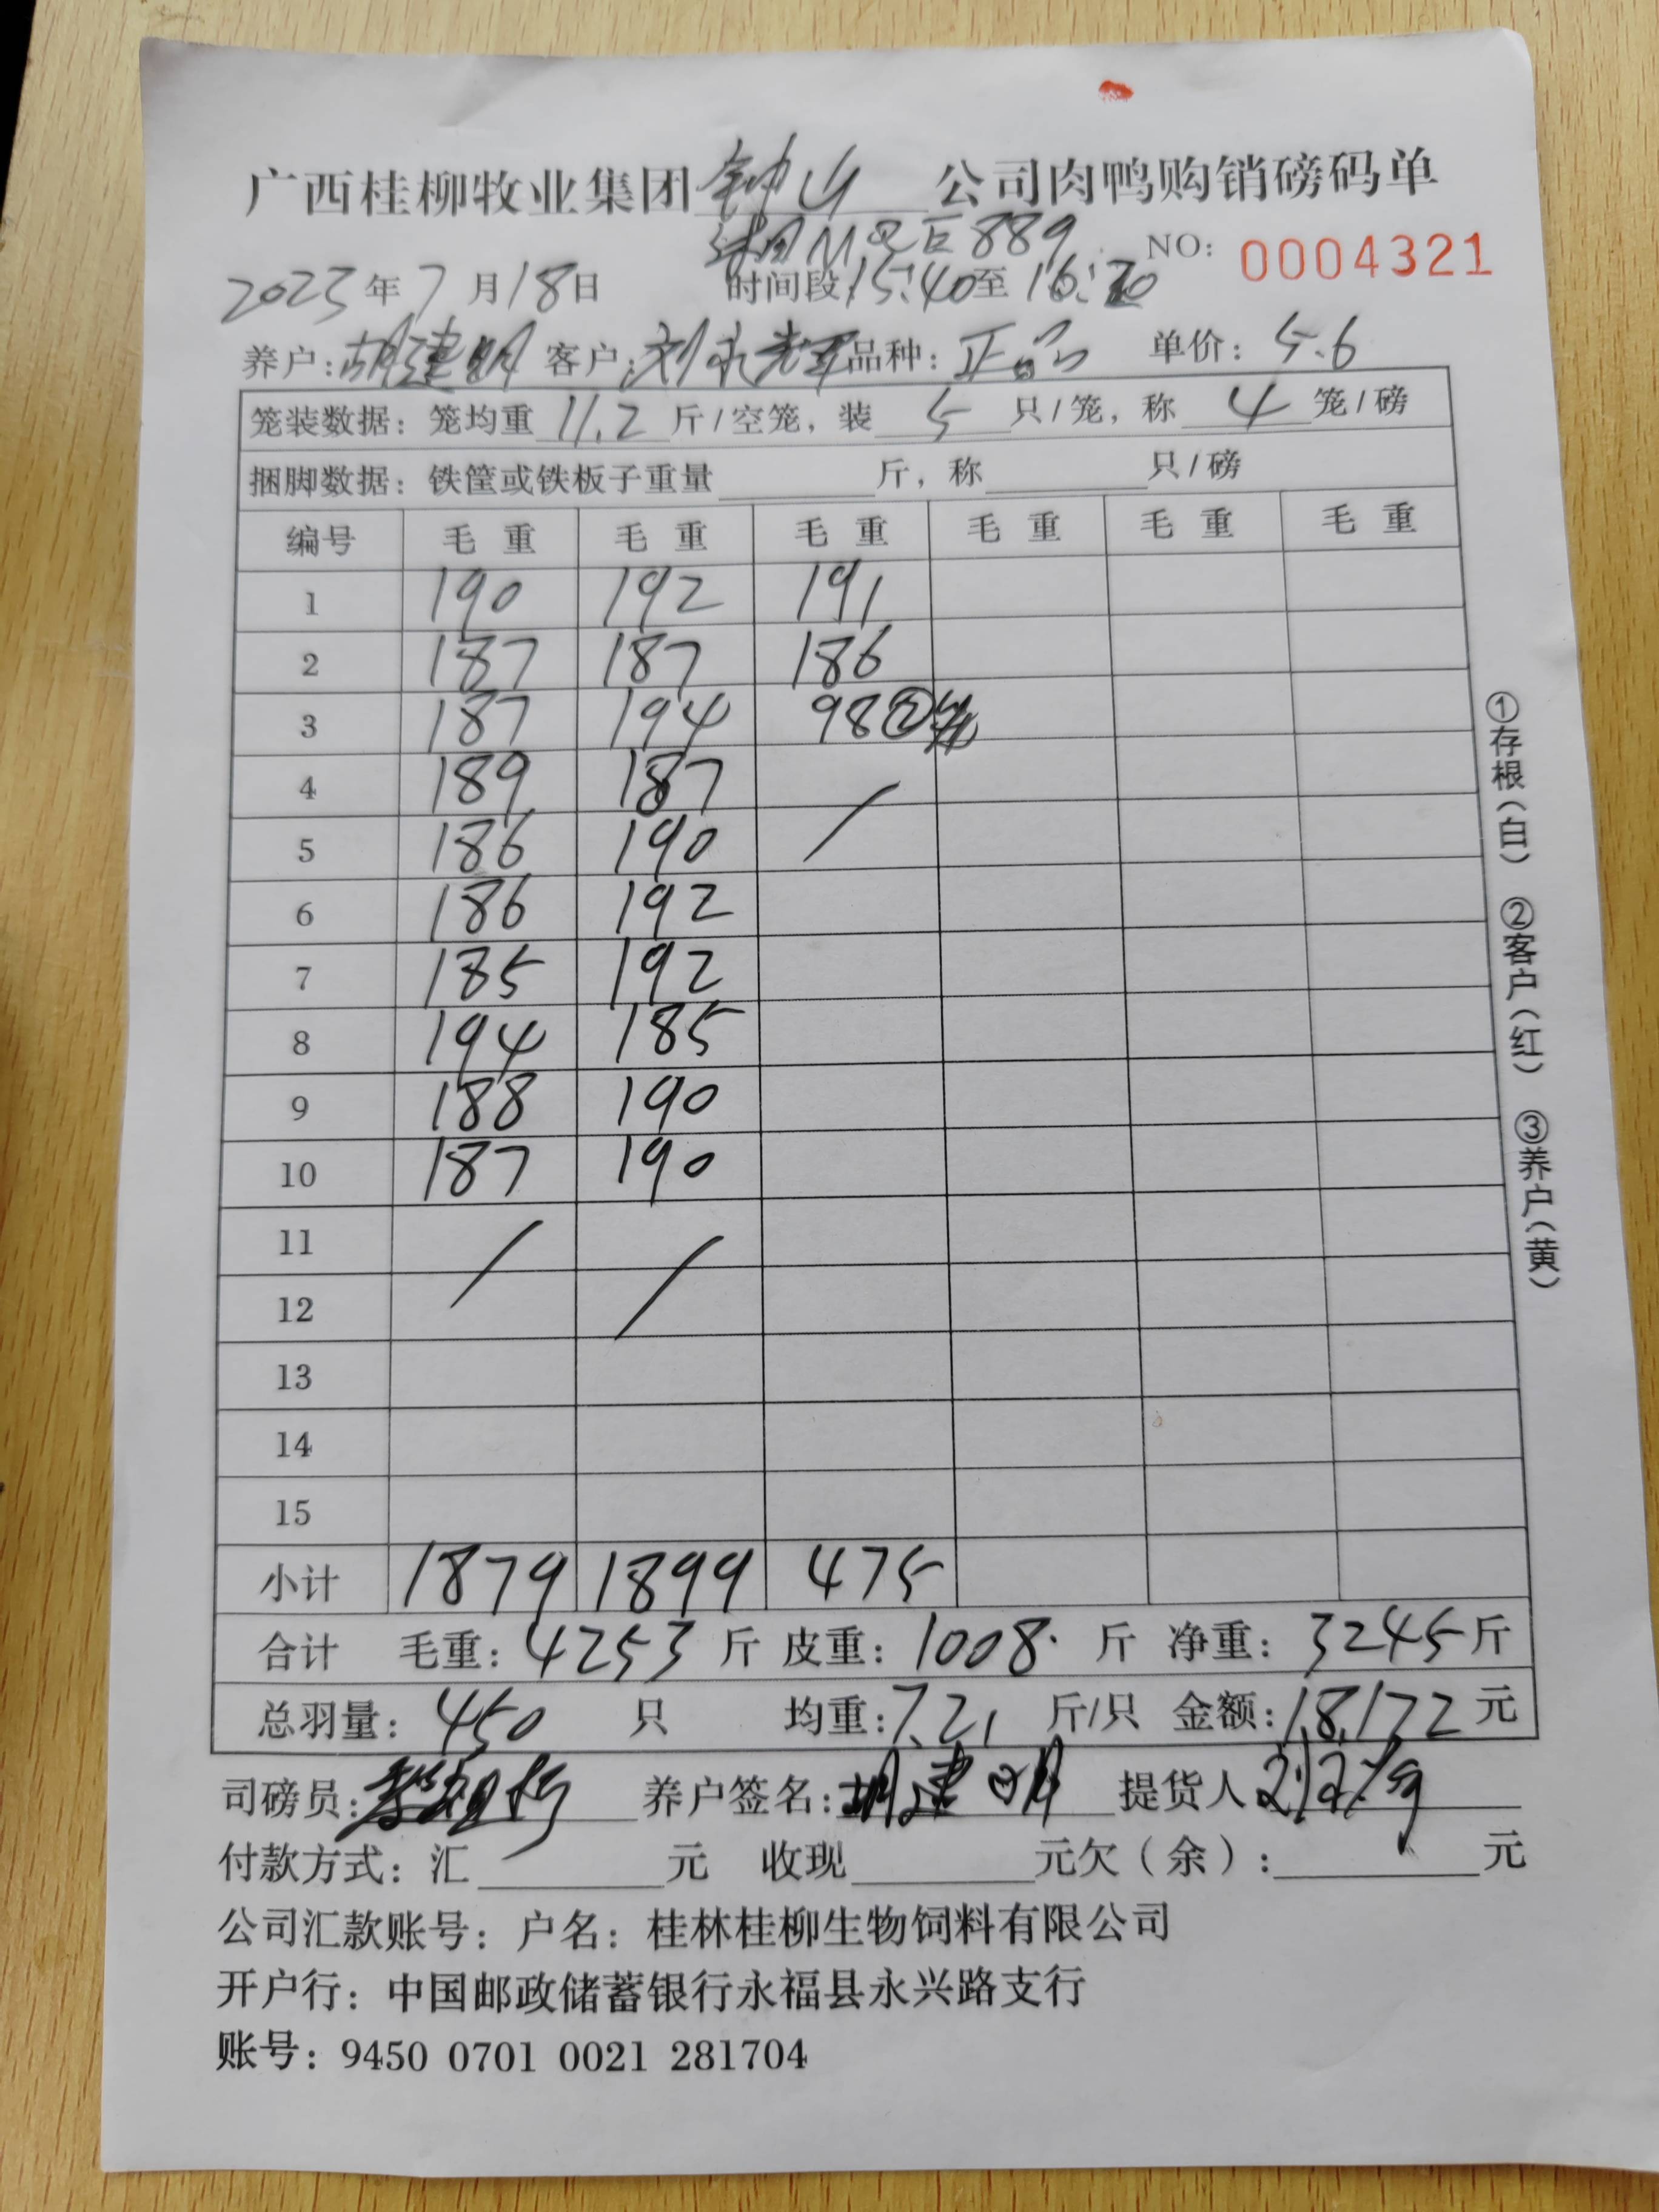 广西桂柳牧业集团 钟山 公司肉鸭购销磅码单
889
NO: 0004321
2023年7月18日 时间段15:40至16:20
养户:胡建明 客户:刘永 品种:正品 单价:5.6
笼装数据:笼均重 11.2 斤/空笼,装 5 只/笼,称 4 笼/磅
捆脚数据:铁筐或铁板子重量 斤,称 只/磅
编号 毛重 毛重 毛重 毛重 毛重 毛重
1 190 192 191
2 187 187 186
3 187 194 98②笼
4 189 187 /
5 186 190
6 186 192
7 185 192
8 194 185
9 188 190
10 187 190
11 / /
12
13
14
15
小计 1879 1899 475
合计 毛重:4253 斤 皮重:1008. 斤 净重:3245斤
总羽量:450 只 均重:7.21 斤/只 金额:18,172元
司磅员: 养户签名:胡建明 提货人
付款方式:汇 元 收现 元欠(余): 元
公司汇款账号:户名:桂林桂柳生物饲料有限公司
开户行:中国邮政储蓄银行永福县永兴路支行
账号:9450 0701 0021 281704
①存根(白) ②客户(红) ③养户(黄)